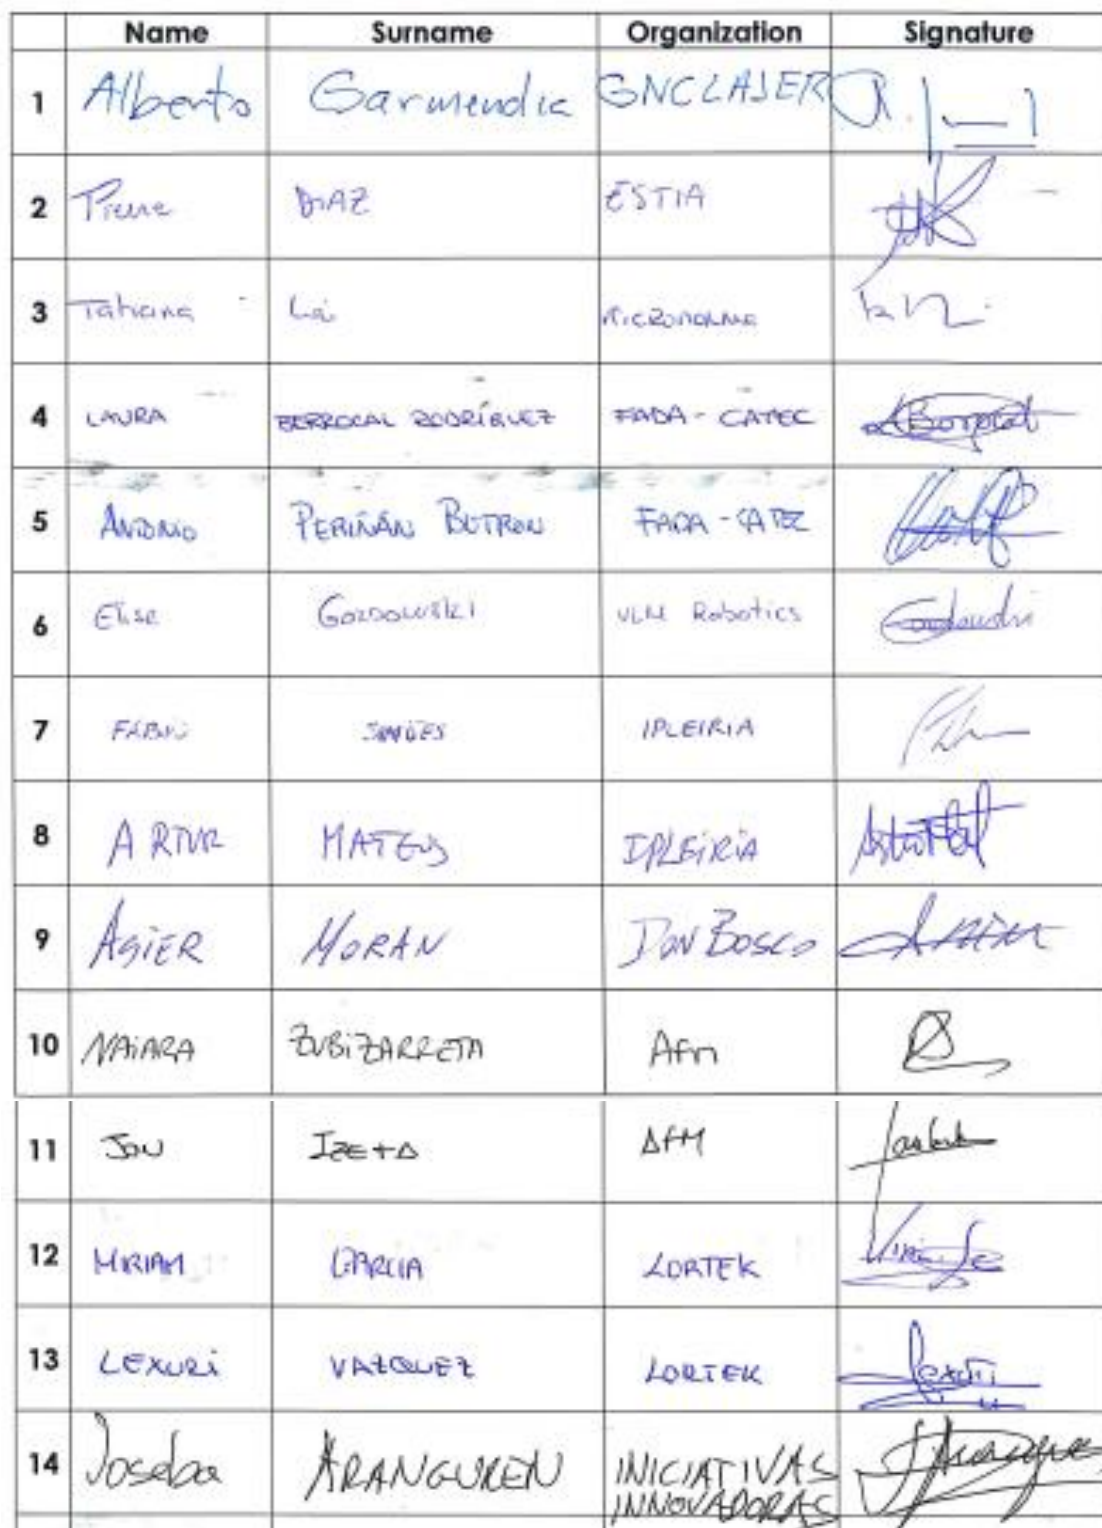 Name Surname Organization Signature
1 Alberto Garmendia GNCLASER
2 Pierre DIAZ ESTIA
3 Tatiana Lai MICRONORMA
4 LAURA BERROCAL RODRÍGUEZ FADA - CATEC
5 ANTONIO PERIÑÁN BUTRON FADA - CATEC
6 Elise GOZDOWSKI VLM Robotics
7 FÁBIO SIMÕES IPLEIRIA
8 ARTUR MATEUS IPLEIRIA
9 ASIER MORAN DON BOSCO
10 NAIARA ZUBIZARRETA Afm
11 JON IZETA AFM
12 MIRIAM GARCIA LORTEK
13 LEXURi VAZQUEZ LORTEK Lexuri
14 Joseba ARANGUREN INICIATIVAS
INNOVADORAS